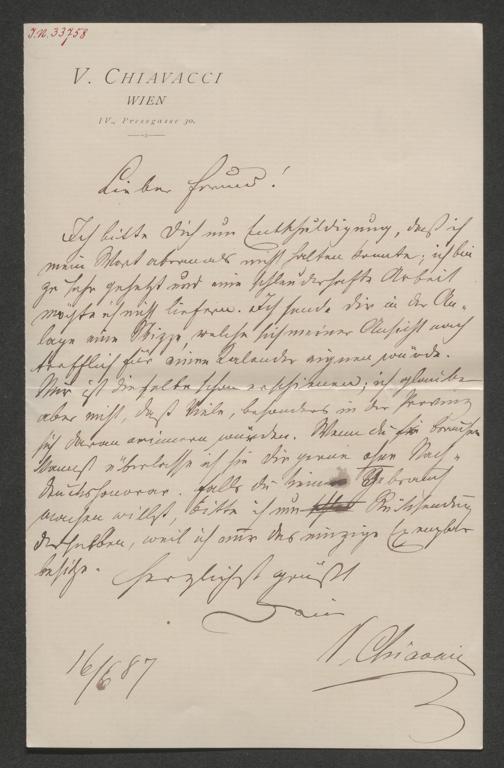 I.N. 33758
V. CHIAVACCI
WIEN
IV., Pressgasse 30.
Lieber Freund!
Ich bitte Dich um Entschuldigung, daß ich
mein Wort abermals nicht halten konnte; ich bin
zu sehr gehetzt und eine schleuderhafte Arbeit
möchte ich nicht liefern. Ich sende dir in der An-
lage eine Skizze welche sich meiner Ansicht nach
trefflich für einen Kalender eignen würde.
Nur ist dieselbe schon erschienen; ich glaube
aber nicht, daß Viele, besonders in der Provinz
sich daran erinnern würden. Wenn du sie brauchen
kannst überlasse ich sie dir gerne ohne Nach-
druckshonorar. Falls du keinen Gebrauch
machen willst, bitte ich um Rücksendung
derselben, weil ich nur das einzige Exemplar
besitze. Herzlichst grüßt
Dein
V. Chiavacci
16/6 87